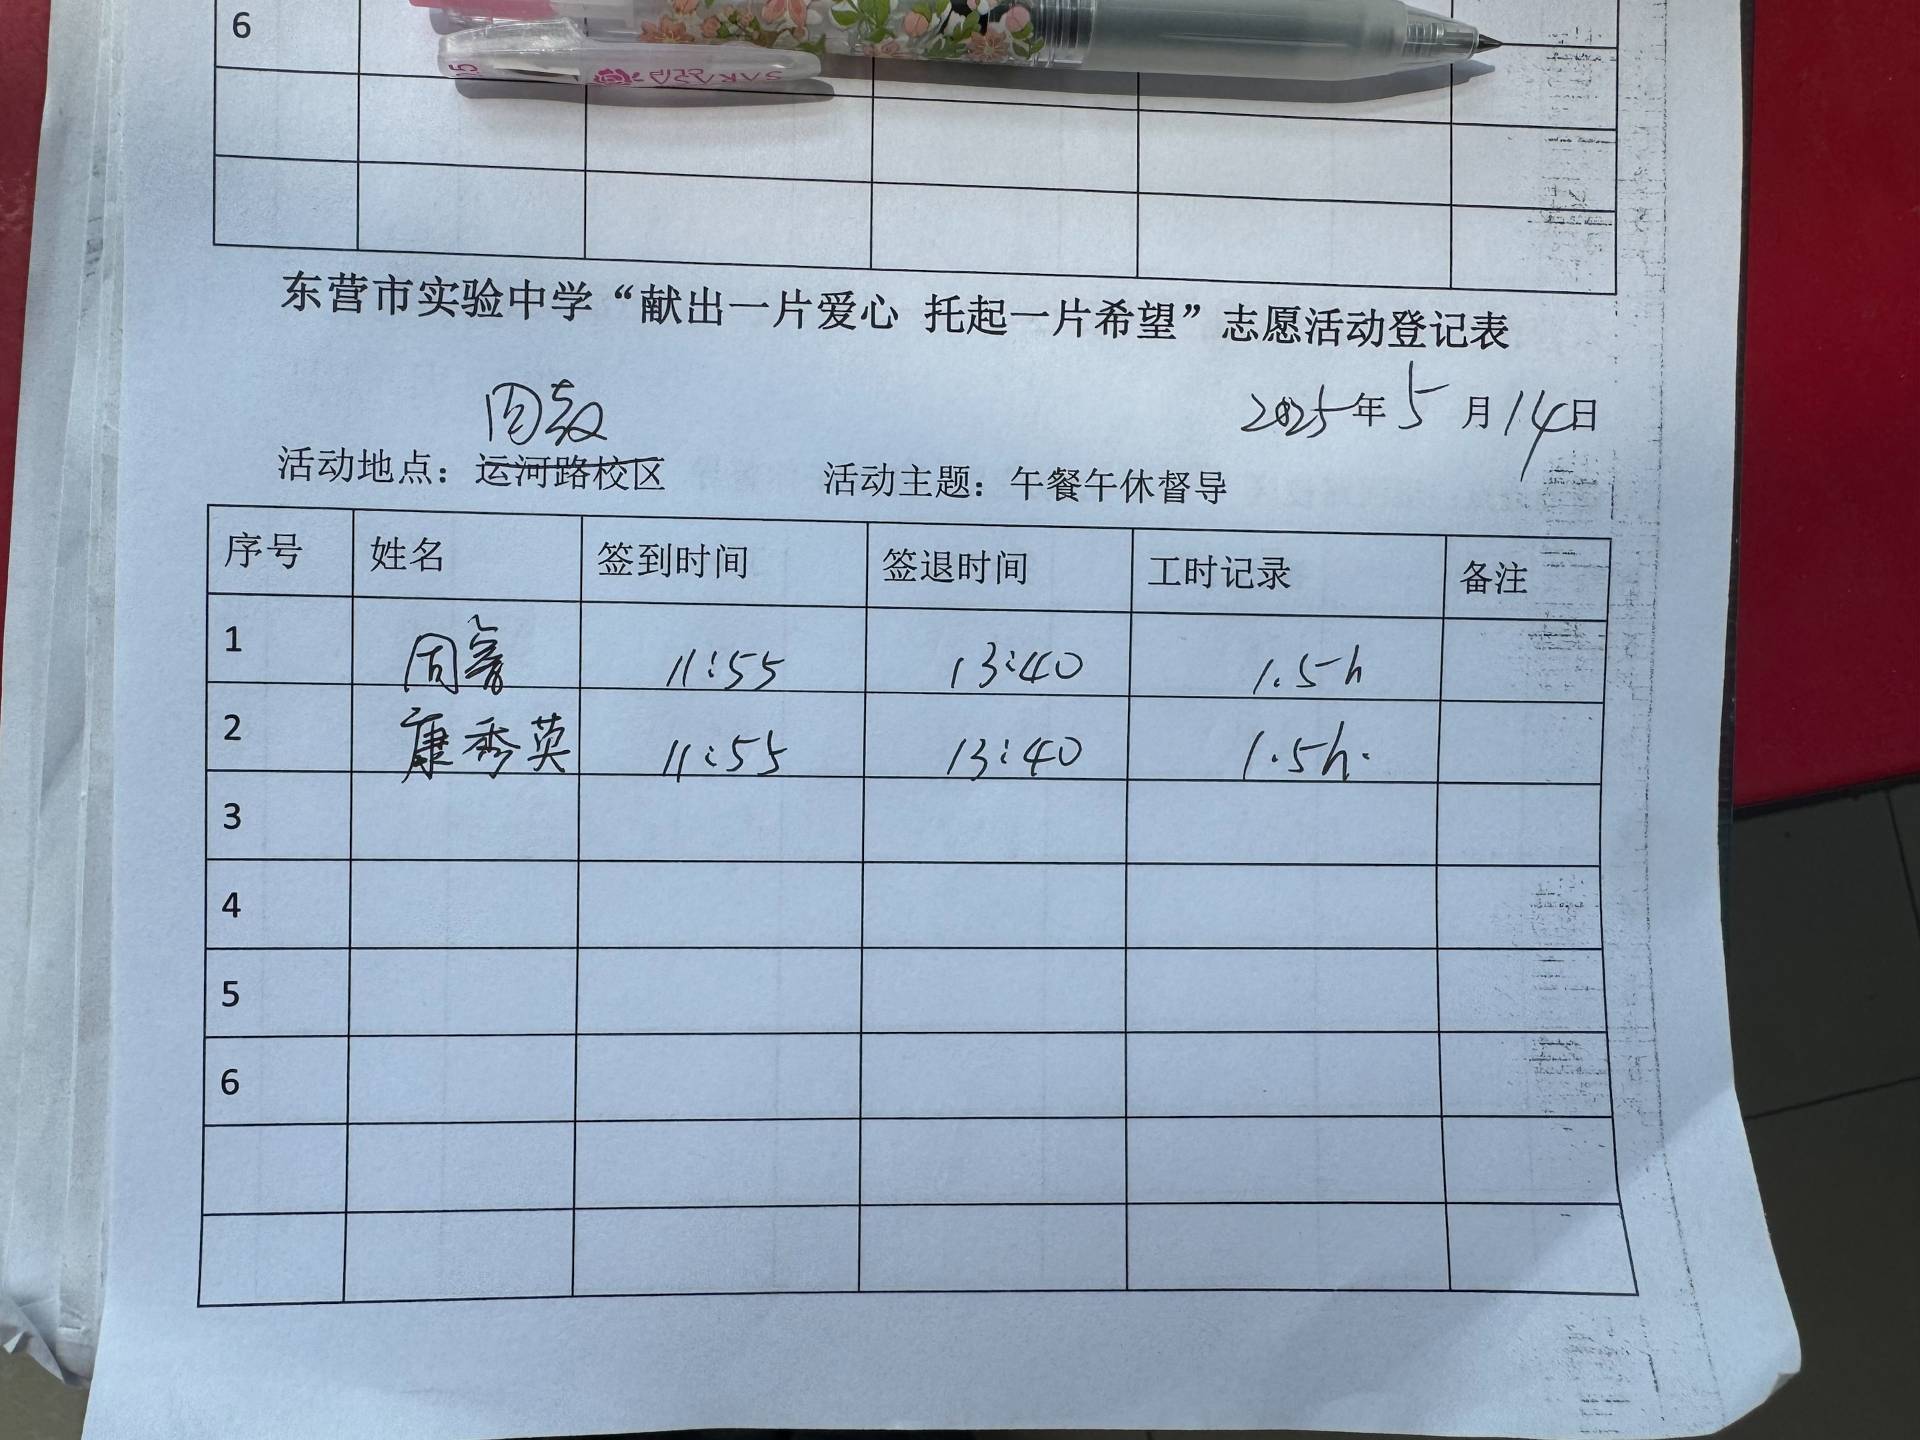 6
SAKURA
东营市实验中学“献出一片爱心 托起一片希望”志愿活动登记表
2025年5月14日
活动地点：运河路校区 活动主题：午餐午休督导
序号 姓名 签到时间 签退时间 工时记录 备注
1 周 11:55 13:40 1.5h
2 康秀英 11:55 13:40 1.5h.
3
4
5
6